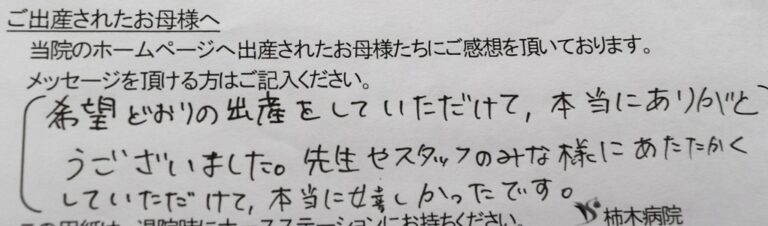 ご出産されたお母様へ
当院のホームページへ出産されたお母様たちにご感想を頂いております。
メッセージを頂ける方はご記入ください。
希望どおりの出産をしていただけて, 本当にありがと
うございました。先生やスタッフのみな様にあたたかく
していただけて, 本当に嬉しかったです。
この用紙は、退院時にナースステーションにお持ちください。 柿木病院